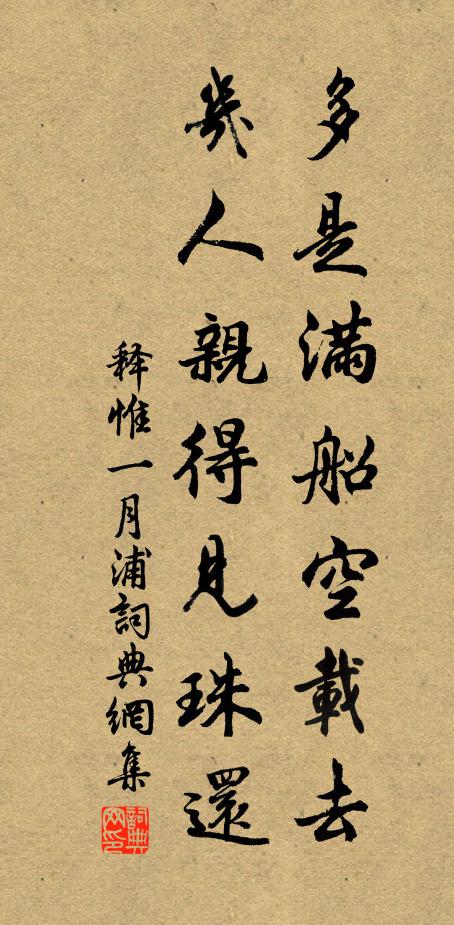 多是滿船空載去
幾人親得見珠還
释惟一月浦詞典網集
詞典网印